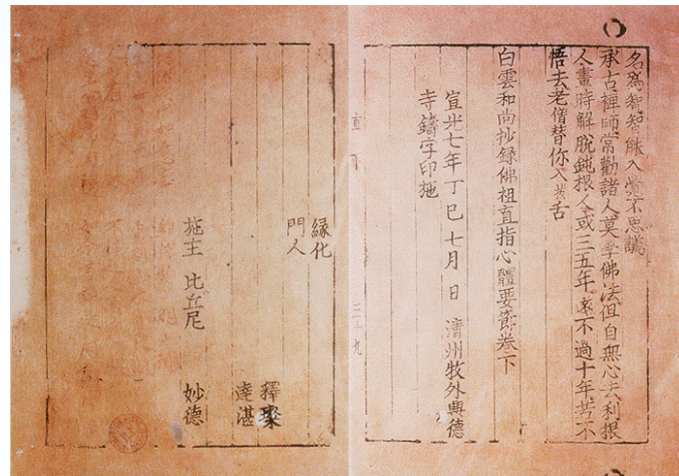 名爲智智能入覺不思議
承古禪師常勸諸人莫學佛法但自無心去利根
人晝時解脫鈍根人或三五年遠不過十年若不
悟去老僧替你入拔舌
白雲和尚抄錄佛祖直指心體要節卷下
宣光七年丁巳七月 日 淸州牧外興德
寺鑄字印施
直下
三十九
緣化
門人
釋璨
達湛
施主 比丘尼
妙德